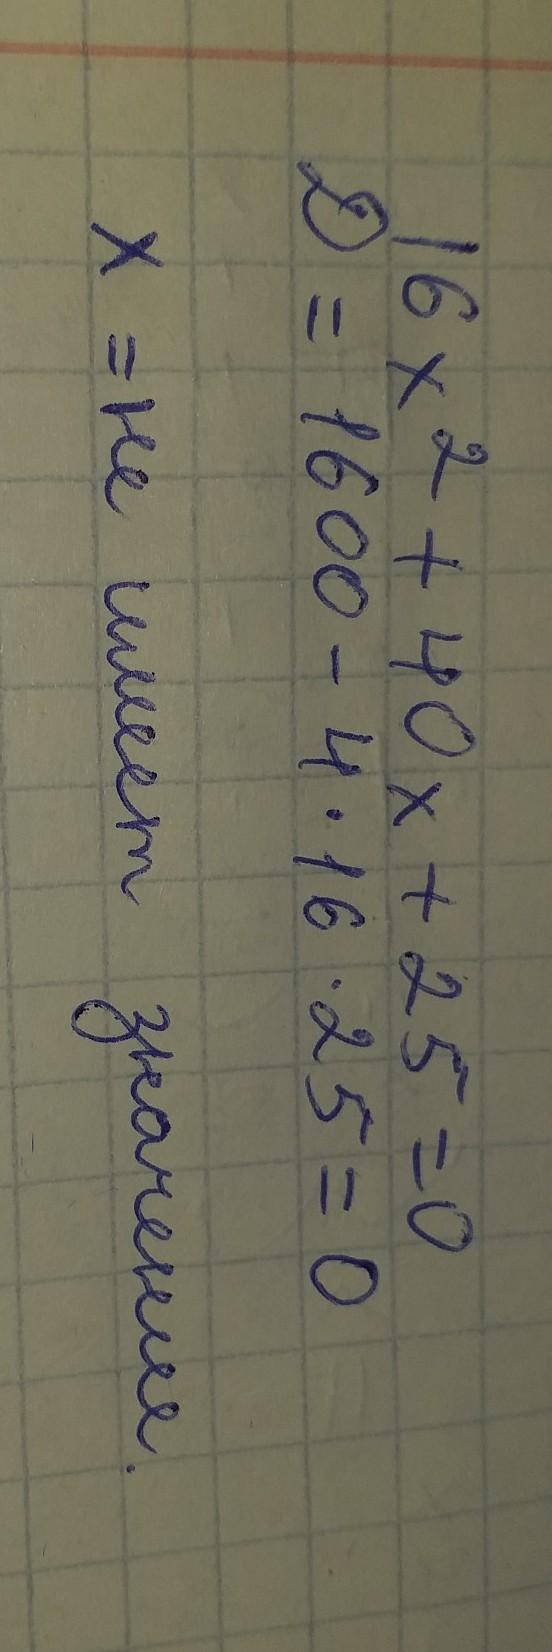 16x² + 40x + 25 = 0
D = 1600 - 4 · 16 · 25 = 0
x = не имеет значения.